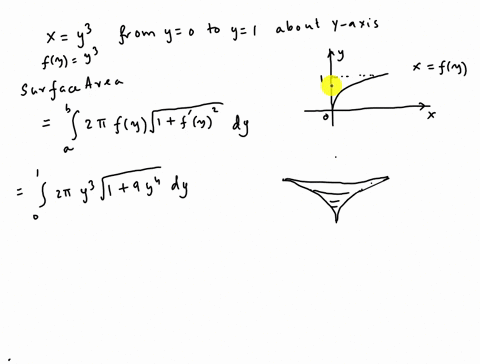 x = y³ from y=0 to y=1 about y-axis
f(y) = y³
Surface Area
= ∫ₐᵇ 2π f(y) √(1 + f'(y)²) dy
= ∫₀¹ 2π y³ √(1 + 9y⁴) dy
y
1
x = f(y)
0
x